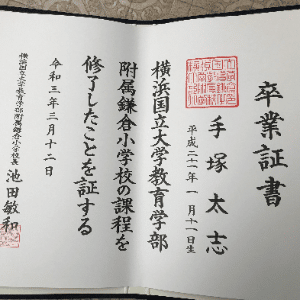 卒業証書
手塚太志
平成二十一年一月十一日生
横浜国立大学教育学部
附属鎌倉小学校の課程を
修了したことを証する
令和三年三月十二日
横浜国立大学教育学部附属鎌倉小学校長
池田敏和